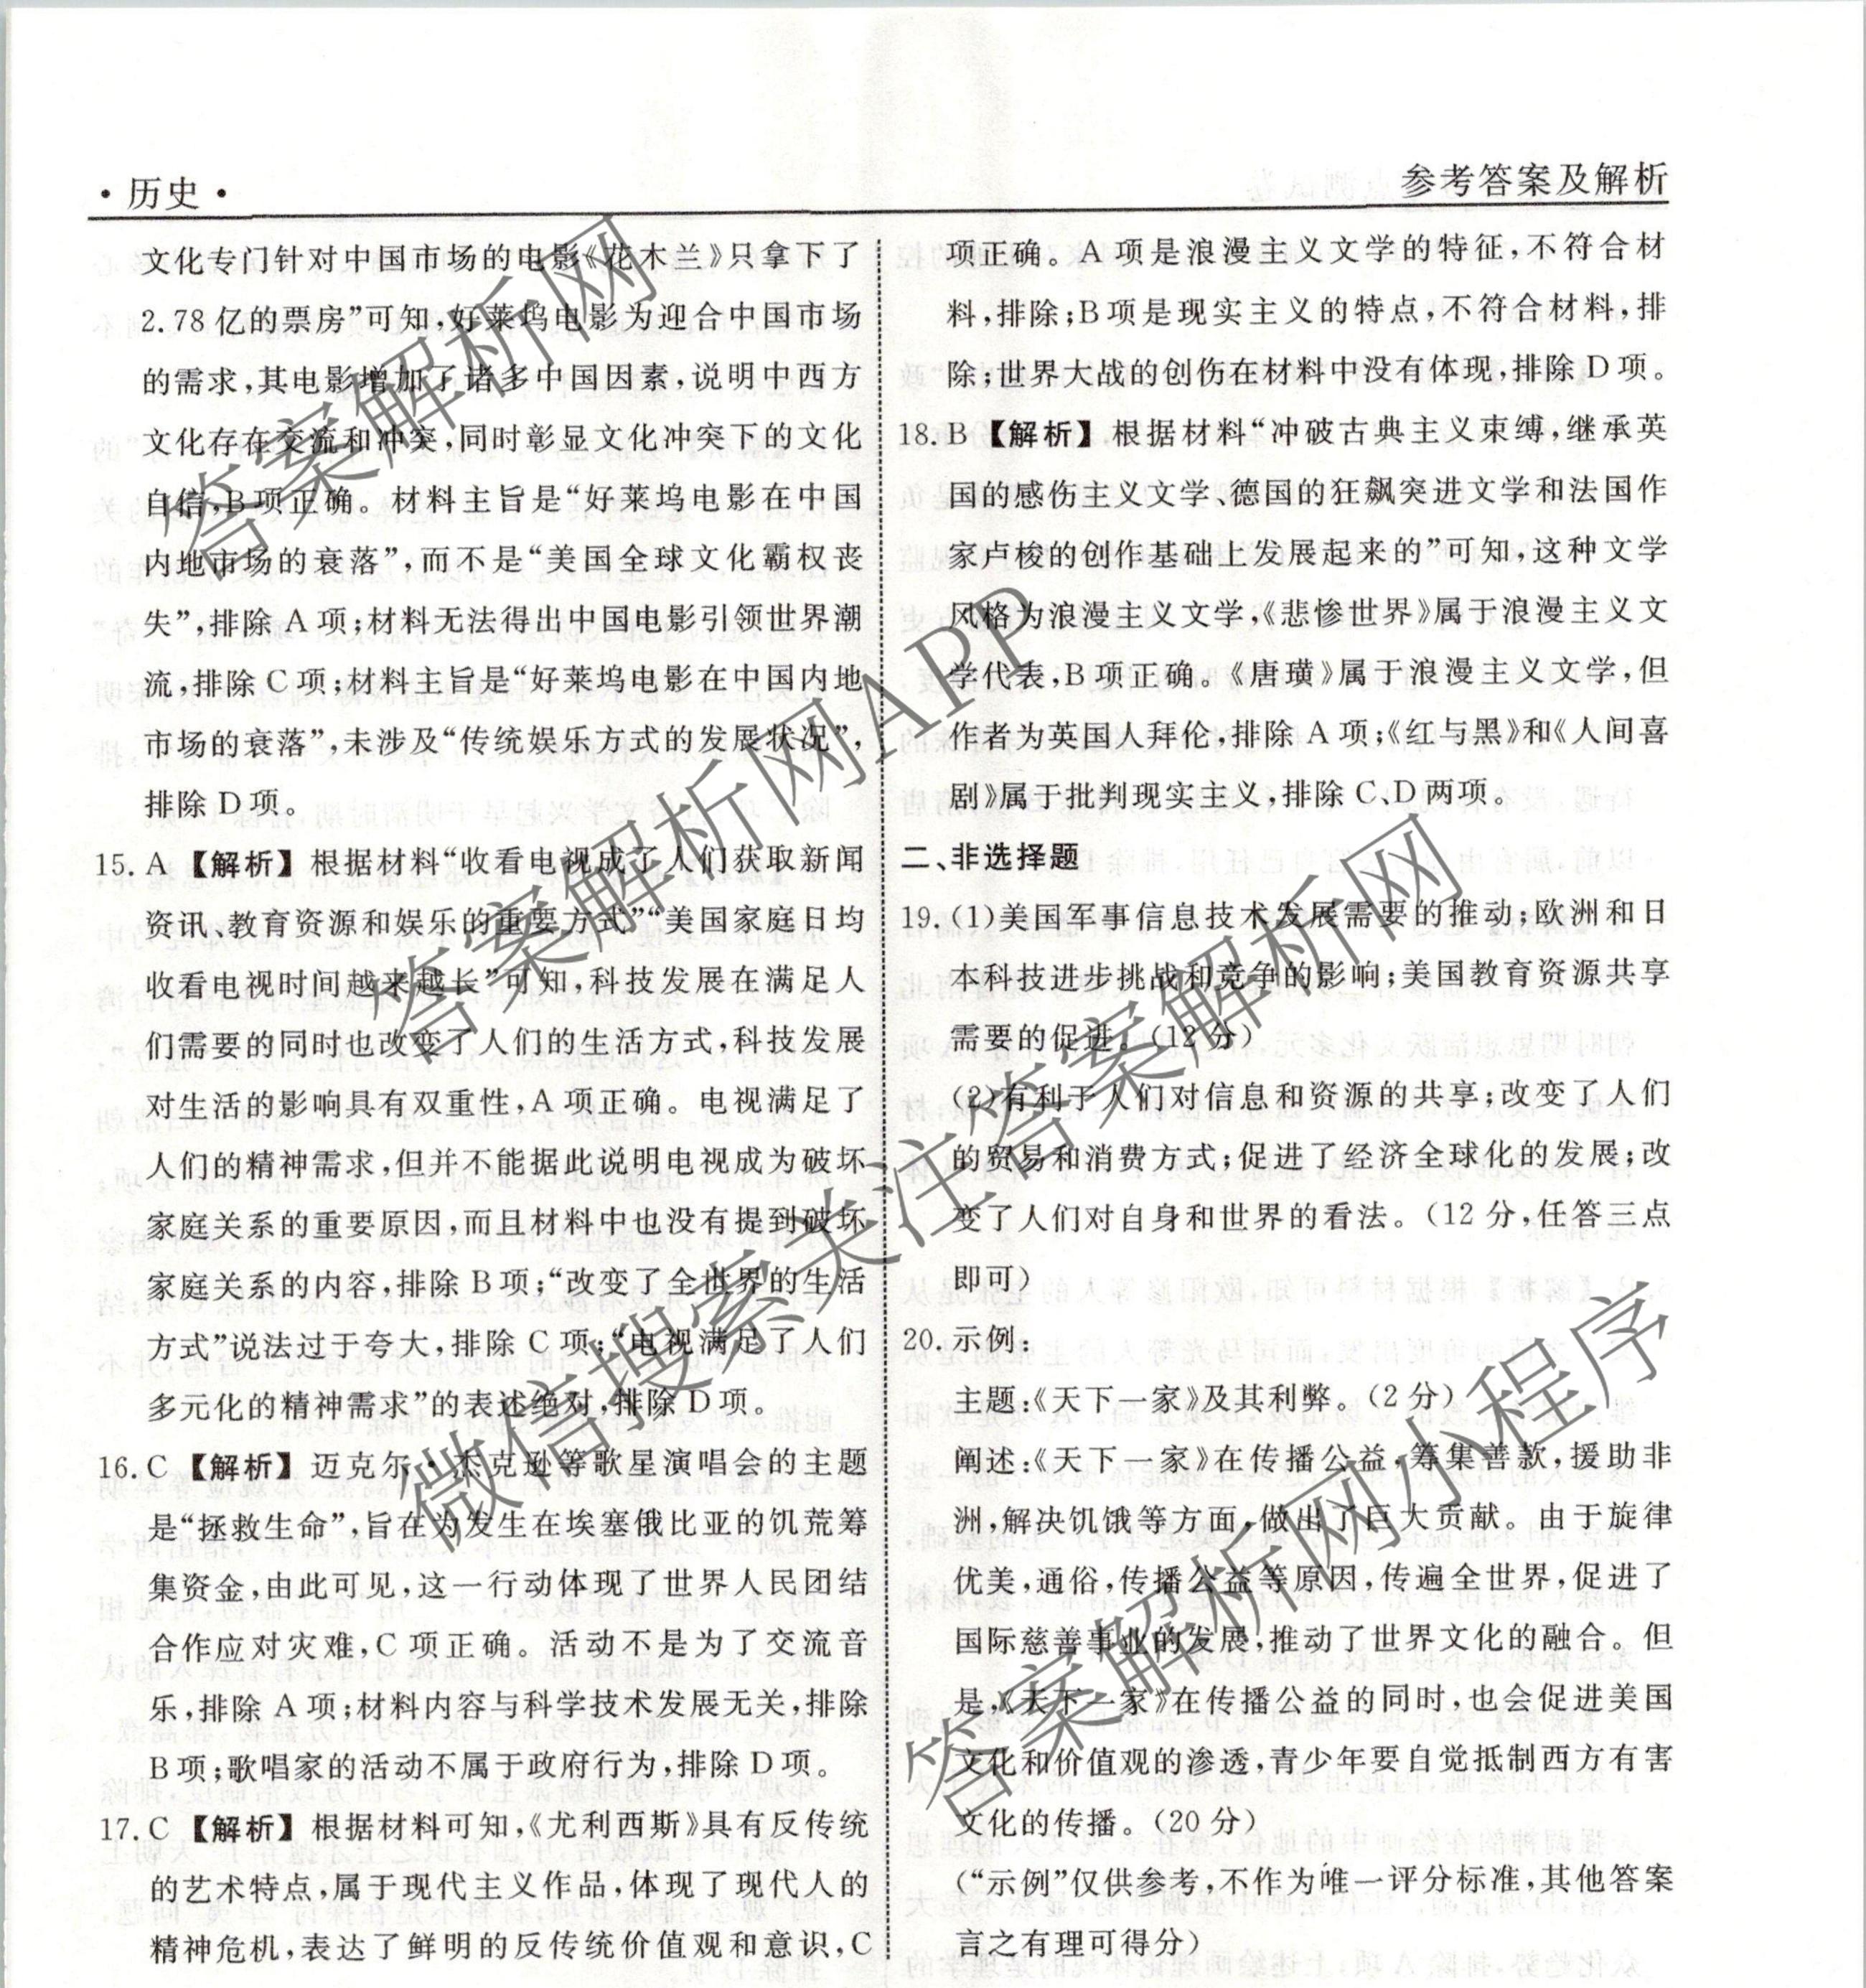 ·历史·
参考答案及解析
文化专门针对中国市场的电影《花木兰》只拿下了
2.78亿的票房”可知,好莱坞电影为迎合中国市场
的需求,其电影增加了诸多中国因素,说明中西方
文化存在交流和冲突,同时彰显文化冲突下的文化
自信,B项正确。材料主旨是“好莱坞电影在中国
内地市场的衰落”,而不是“美国全球文化霸权丧
失”,排除A项;材料无法得出中国电影引领世界潮
流,排除C项;材料主旨是“好莱坞电影在中国内地
市场的衰落”,未涉及“传统娱乐方式的发展状况”,
排除D项。
15. A 【解析】根据材料“收看电视成了人们获取新闻
资讯、教育资源和娱乐的重要方式”“美国家庭日均
收看电视时间越来越长”可知,科技发展在满足人
们需要的同时也改变了人们的生活方式,科技发展
对生活的影响具有双重性,A项正确。电视满足了
人们的精神需求,但并不能据此说明电视成为破坏
家庭关系的重要原因,而且材料中也没有提到破坏
家庭关系的内容,排除B项;“改变了全世界的生活
方式”说法过于夸大,排除C项;“电视满足了人们
多元化的精神需求”的表述绝对,排除D项。
16. C 【解析】迈克尔·杰克逊等歌星演唱会的主题
是“拯救生命”,旨在为发生在埃塞俄比亚的饥荒筹
集资金,由此可见,这一行动体现了世界人民团结
合作应对灾难,C项正确。活动不是为了交流音
乐,排除A项;材料内容与科学技术发展无关,排除
B项;歌唱家的活动不属于政府行为,排除D项。
17. C 【解析】根据材料可知,《尤利西斯》具有反传统
的艺术特点,属于现代主义作品,体现了现代人的
精神危机,表达了鲜明的反传统价值观和意识,C
项正确。A项是浪漫主义文学的特征,不符合材
料,排除;B项是现实主义的特点,不符合材料,排
除;世界大战的创伤在材料中没有体现,排除D项。
18. B 【解析】根据材料“冲破古典主义束缚,继承英
国的感伤主义文学、德国的狂飙突进文学和法国作
家卢梭的创作基础上发展起来的”可知,这种文学
风格为浪漫主义文学,《悲惨世界》属于浪漫主义文
学代表,B项正确。《唐璜》属于浪漫主义文学,但
作者为英国人拜伦,排除A项;《红与黑》和《人间喜
剧》属于批判现实主义,排除C、D两项。
二、非选择题
19. (1)美国军事信息技术发展需要的推动;欧洲和日
本科技进步挑战和竞争的影响;美国教育资源共享
需要的促进。(12分)
(2)有利于人们对信息和资源的共享;改变了人们
的贸易和消费方式;促进了经济全球化的发展;改
变了人们对自身和世界的看法。(12分,任答三点
即可)
20. 示例:
主题:《天下一家》及其利弊。(2分)
阐述:《天下一家》在传播公益,筹集善款,援助非
洲,解决饥饿等方面,做出了巨大贡献。由于旋律
优美,通俗,传播公益等原因,传遍全世界,促进了
国际慈善事业的发展,推动了世界文化的融合。但
是,《天下一家》在传播公益的同时,也会促进美国
文化和价值观的渗透,青少年要自觉抵制西方有害
文化的传播。(20分)
(“示例”仅供参考,不作为唯一评分标准,其他答案
言之有理可得分)
答案解析网
答案解析网APP
微信搜索关注答案解析网
答案解析网小程序